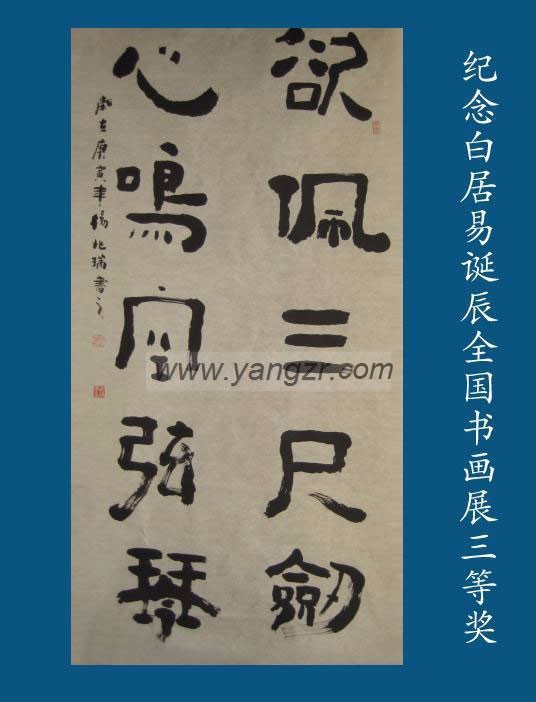 纪念白居易诞辰全国书画展三等奖
欲佩三尺劍
心鳴空弦琴
歲在庚寅年楊兆瑞書之
www.yangzr.com